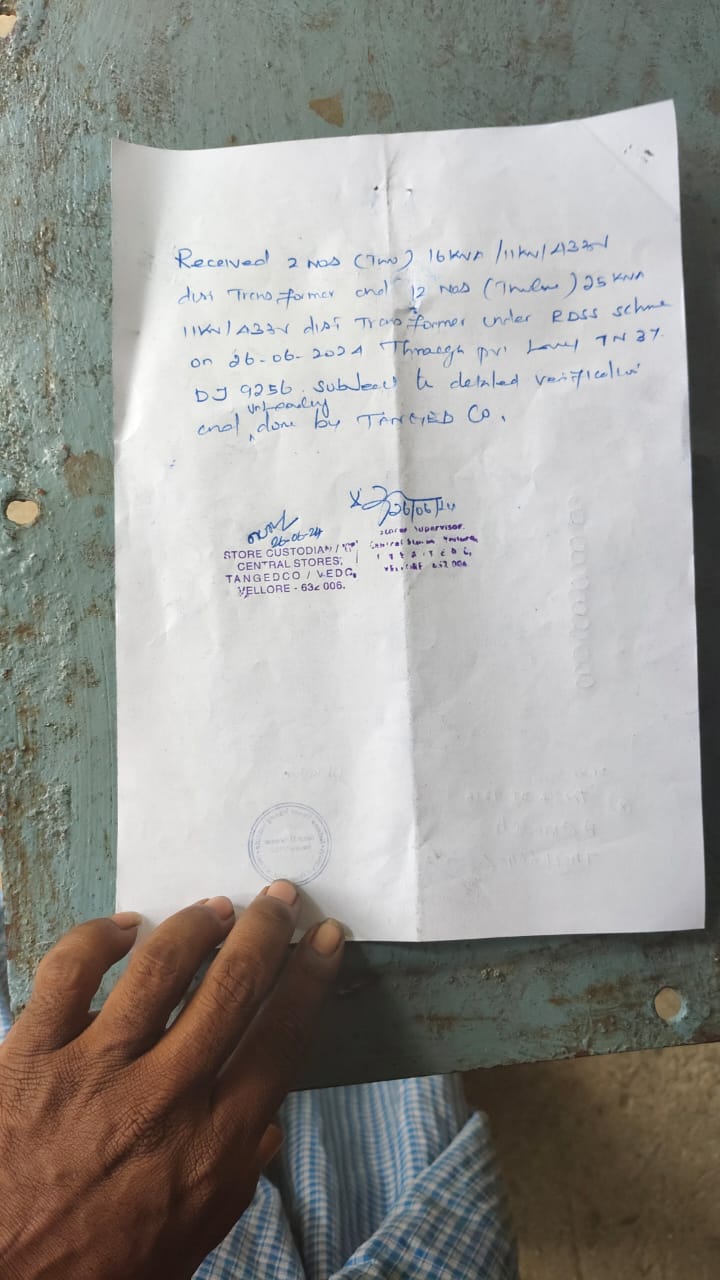 Received 2 Nos (Two) 16 KVA /11KV/433V
dist Transformer and 12 Nos (Twelve) 25 KVA
11KV/433V dist Transformer under RDSS scheme
on 26-06-2024 Through pvt Lorry TN 37
DJ 9256 subject to detailed verification
unloading
and done by TANGED Co.
26-06-24
26/06/24
STORE CUSTODIAN /
CENTRAL STORES,
TANGEDCO / VEDC,
VELLORE - 632 006.
Stores Supervisor.
Central Stores Vellore,
632 006